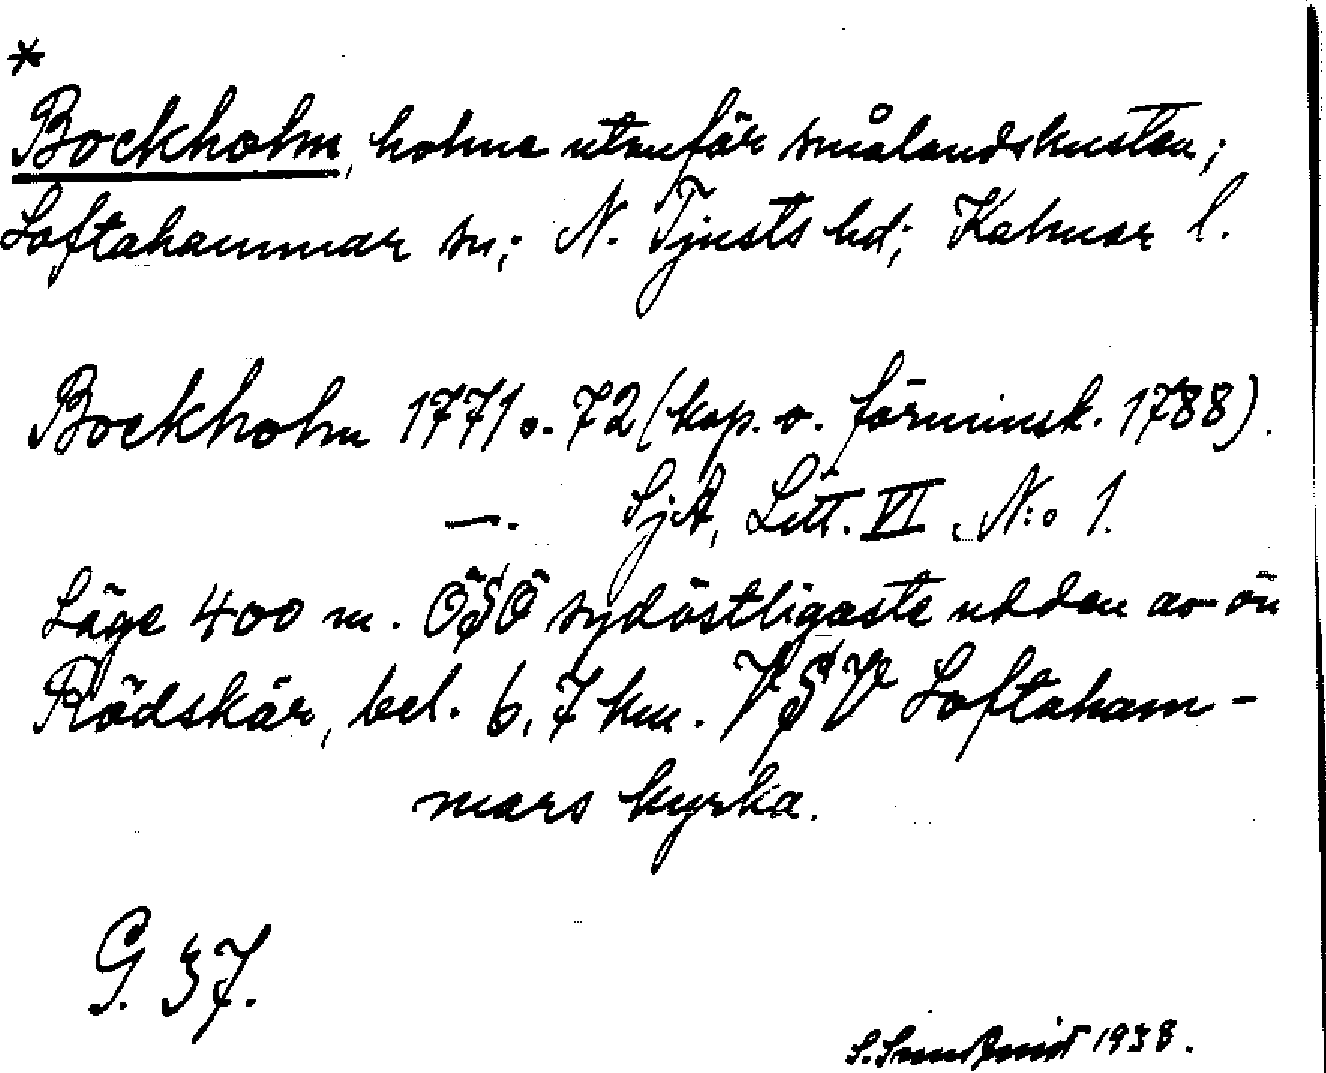 *
Bockholm, holme utanför smålandskusten;
Loftahammar sn; N. Tjusts hd; Kalmar l.
Bockholm 1771 o. 72 (kop. o. förminsk. 1788).
—. SjA, Litt. VI N:o 1.
Läge 400 m. ÖSÖ sydöstligaste udden av ön
Rödskär, bel. 6,7 km. VSV Loftaham-
mars kyrka.
G. 37.
1938.